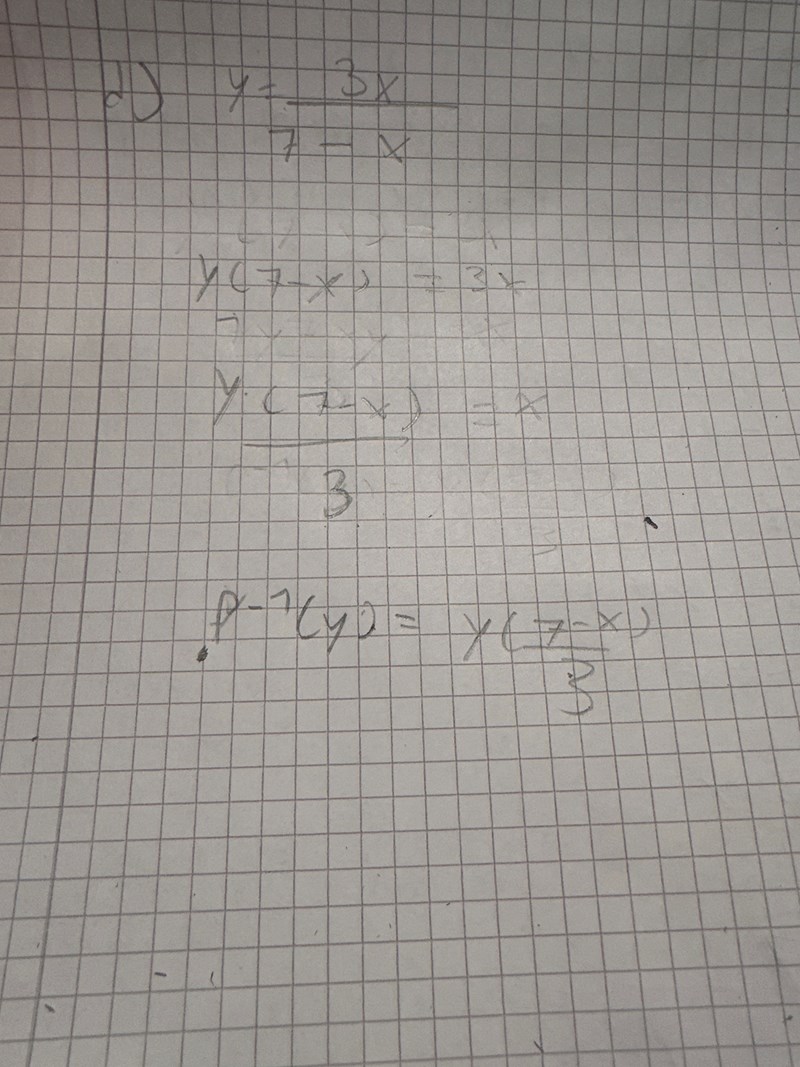 d) y = 3x
7 - x
y(7-x) = 3x
y·(7-x) = x
3
p-1(y) = y(7-x)
3